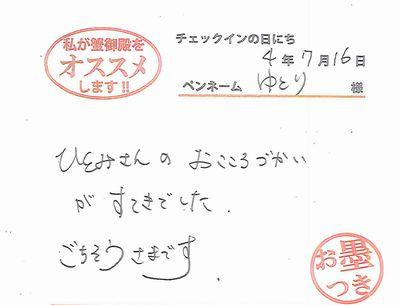 私が蟹御殿を
オススメ
します!!
チェックインの日にち
4年7月16日
ペンネーム ゆとり 様
ひとみさんの おこころづかい
が すてきでした.
ごちそうさまです
お墨
つき